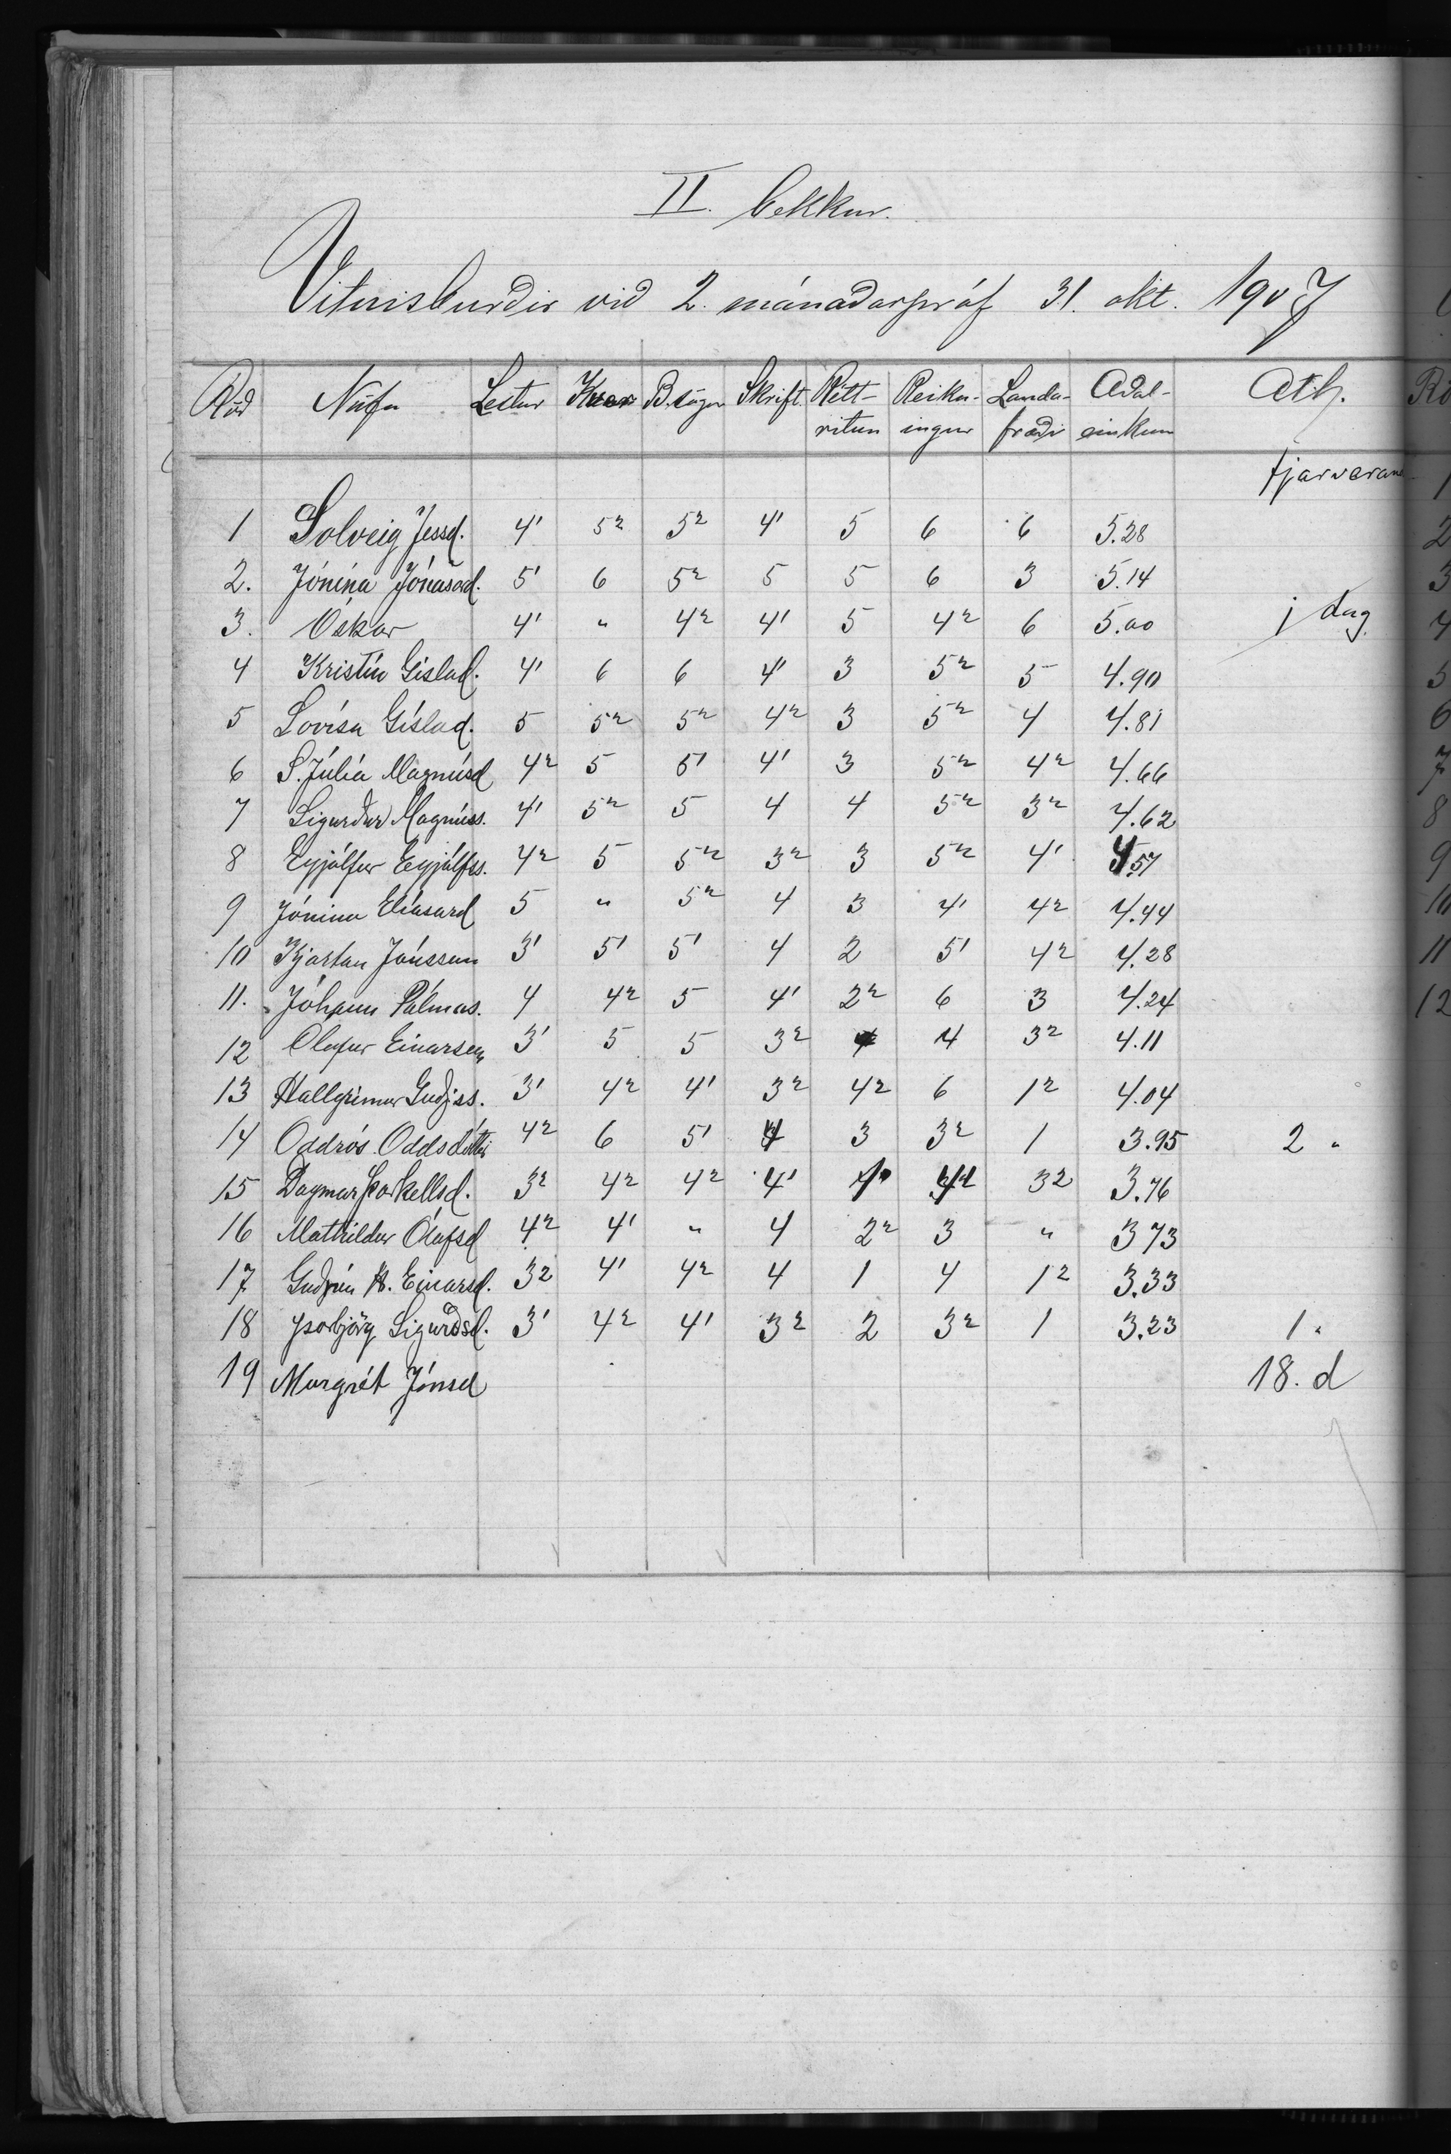 II. bekkur.
Vitnisburðir við 2. mánaðarpróf 31. okt. 1907
Röð Nöfn Lestur Kver B.sögur Skrift. Rétt-ritun Reikn-ingur Landa-fræði Aðal-einkunn Ath.
fjarveran
1 Solveig Jessd. 4' 5² 5² 4' 5 6 6 5.28
2. Jónína Jónasard. 5' 6 5² 5 5 6 3 5.14
3. Óskar 4' " 4² 4' 5 4² 6 5.00 1 dag.
4 Kristín Gíslad. 4' 6 6 4' 3 5² 5 4.90
5 Lovísa Gíslad. 5 5² 5² 4² 3 5² 4 4.81
6 S. Júlía Magnúsd 4² 5 5' 4' 3 5² 4² 4.66
7 Sigurður Magnúss. 4' 5² 5 4 4 5² 3² 4.62
8 Eyjólfur Eyjólfss. 4² 5 5² 3² 3 5² 4' 4.57
9 Jónína Elíasard 5 " 5² 4 3 4' 4² 4.44
10 Kjartan Jónsson 3' 5' 5' 4 2 5' 4² 4.28
11. Jóhann Pálmas. 4 4² 5 4' 2² 6 3 4.24
12 Olafur Einarsson 3' 5 5 3² 4 4 3² 4.11
13 Hallgrímur Guðjss. 3' 4² 4' 3² 4² 6 1² 4.04
14 Oddrós Oddsdóttir 4² 6 5' 4 3 3² 1 3.95 2 "
15 Dagmar Þorkellsd. 3² 4² 4² 4' 1' 4² 3² 3.76
16 Mathildur Ólafsd 4² 4' " 4 2² 3 " 3 73
17 Guðrún A. Einarsd. 3² 4' 4² 4 1 4 1² 3.33
18 Þorbjörg Sigurðsd. 3' 4² 4' 3² 2 3² 1 3.23 1 "
19 Margrét Jónsd 18. d